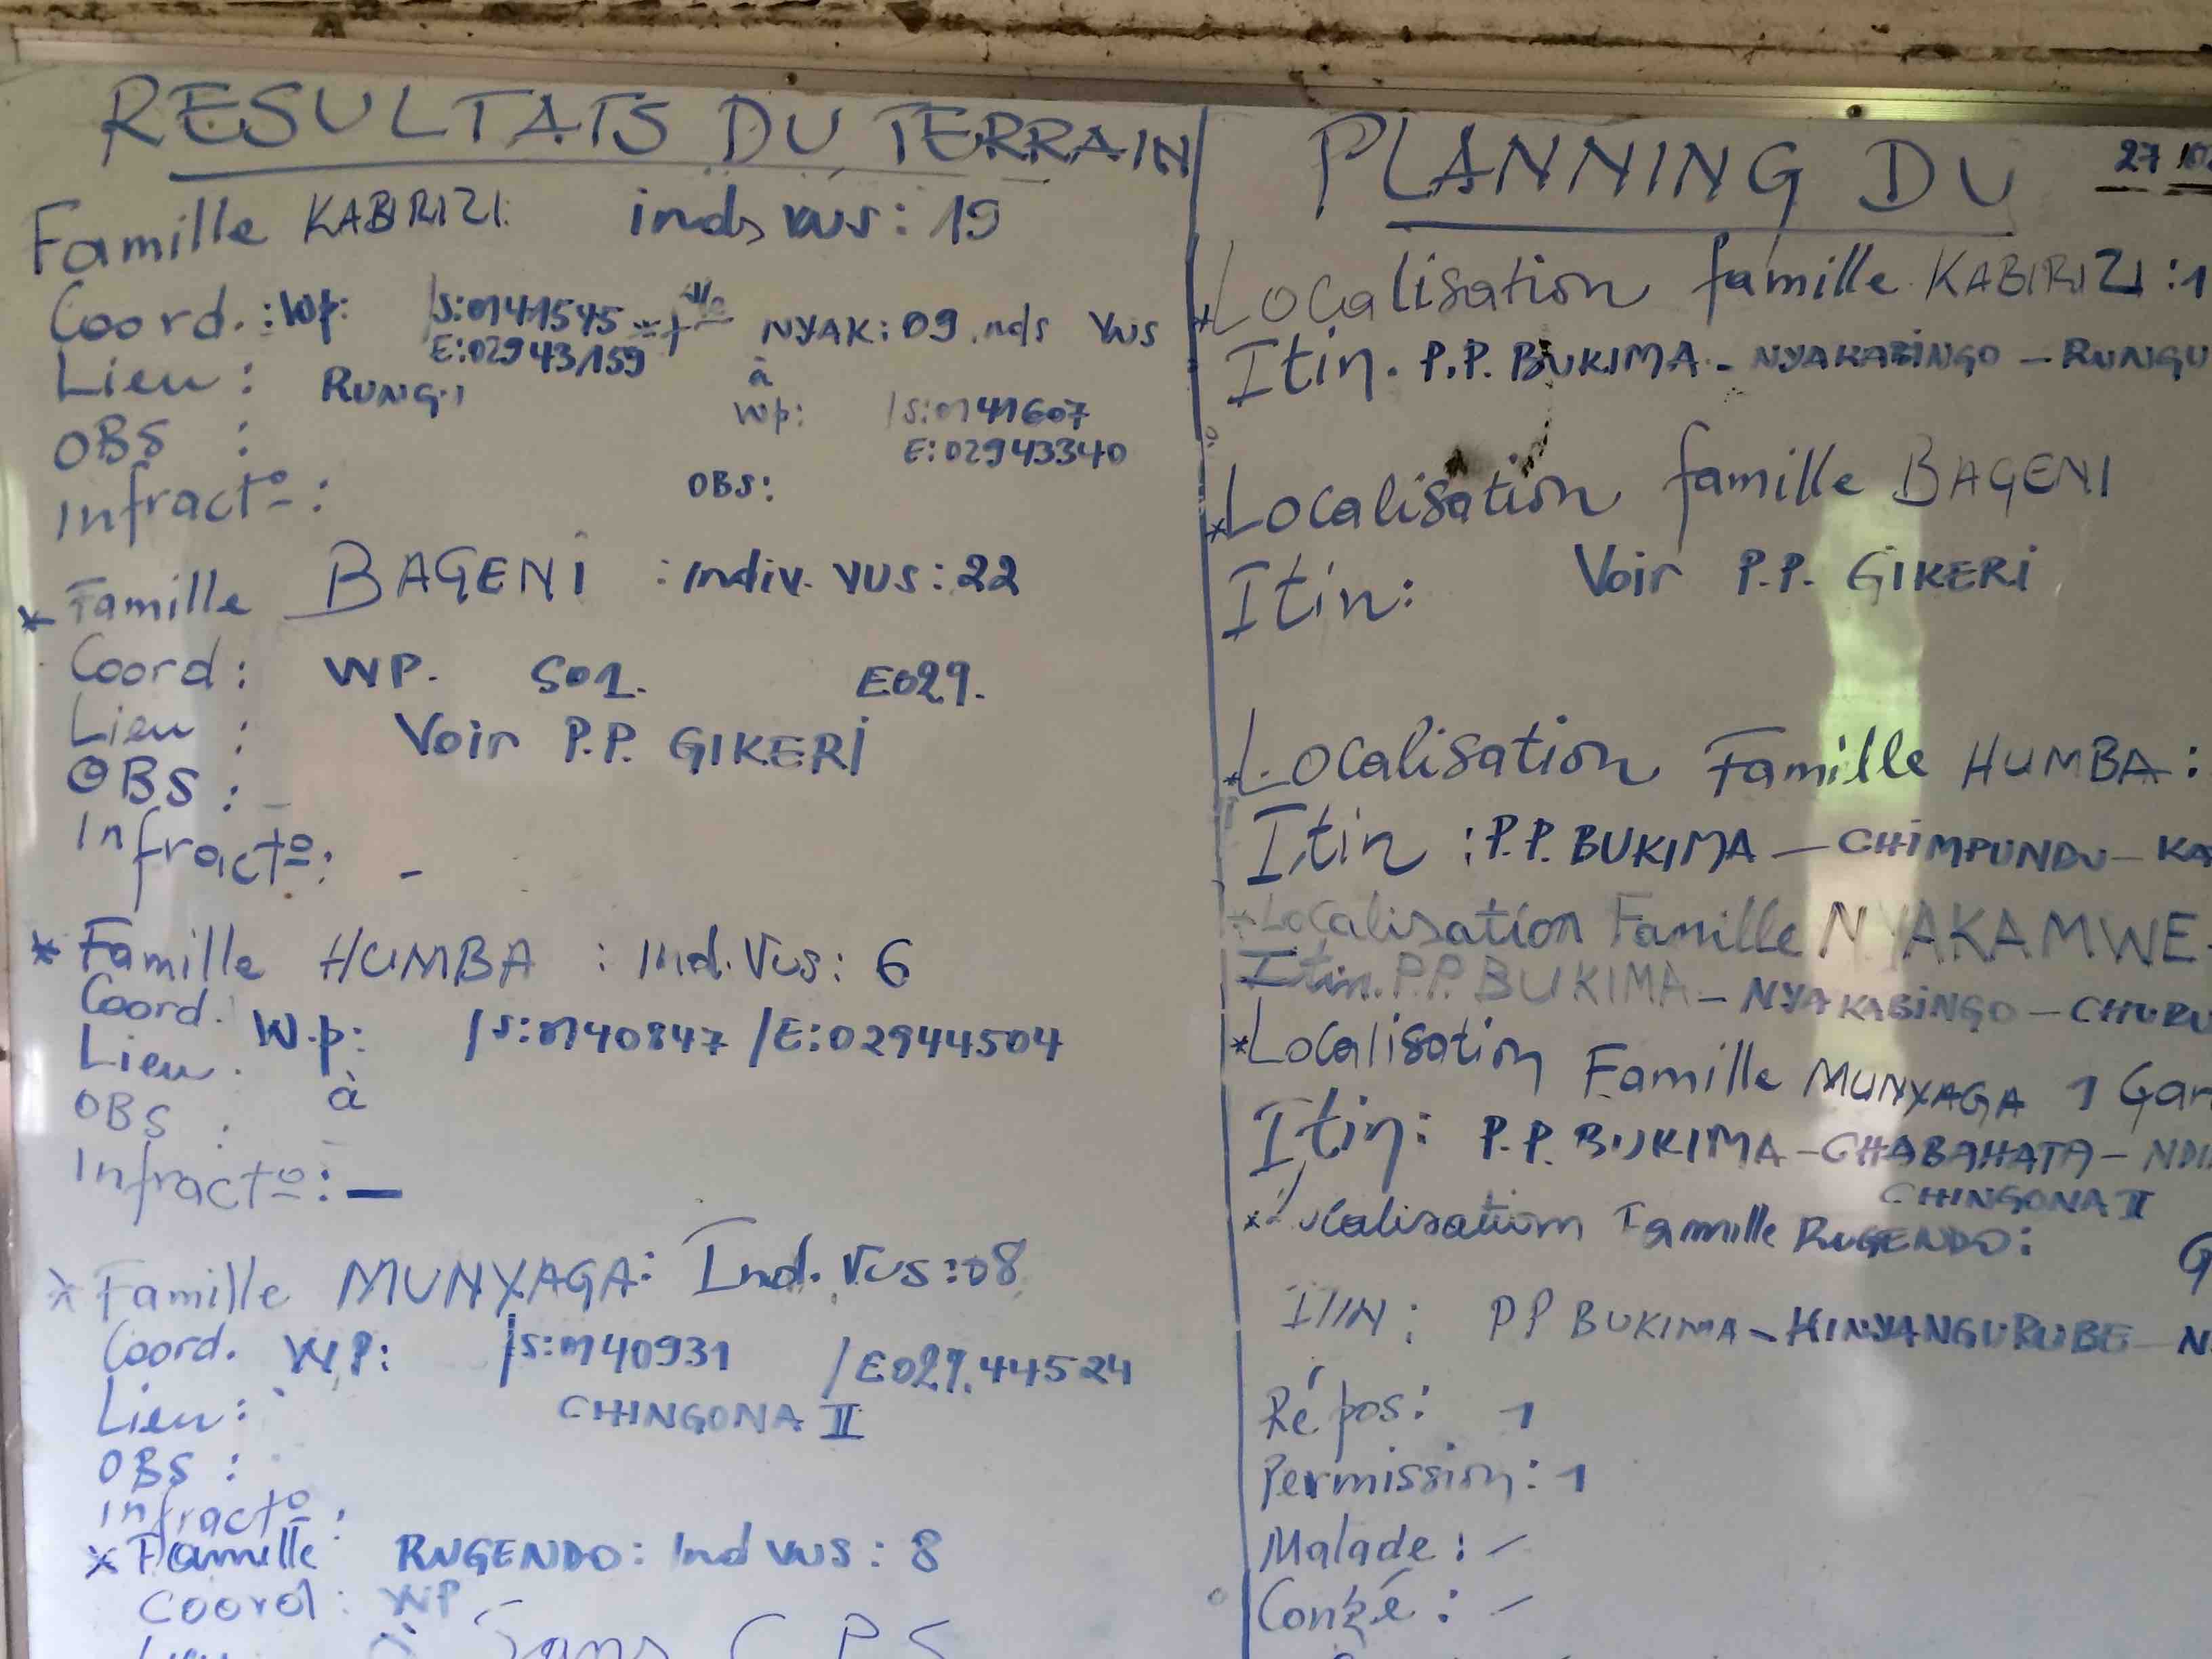 RESULTATS DU TERRAIN
Famille KABIRIZI: inds vus: 19
Coord.: Wp: /S:0141545
E:02943159
NYAK: 09 inds vus
Lieu: RUNGU
à
Wp: /S:0141607
E:02943340
OBS :
OBS:
Infractº:
* Famille BAGENI : Indiv. vus: 22
Coord: WP. S01. E029.
Lieu :
Voir P.P. GIKERI
OBS : -
Infractº: -
* Famille HUMBA : Ind. Vus: 6
Coord. W.p: /S:0140847 /E:02944504
Lieu.
à
OBS :
Infractº: —
* Famille MUNYAGA: Ind. Vus: 08
Coord. WP: /S:0140931 /E029.44524
Lieu: CHINGONA II
OBS :
Infractº:
* Famille RUGENDO: Ind vus: 8
Coord: WP
à Sans GPS
PLANNING DU 27
* Localisation famille KABIRIZI: 1
Itin. P.P. BUKIMA - NYAKABINGO - RUNGU
* Localisation famille BAGENI
Itin: Voir P.P. GIKERI
* Localisation Famille HUMBA:
Itin: P.P. BUKIMA - CHIMPUNDU - KA
* Localisation Famille NYAKAMWE
Itin. P.P. BUKIMA - NYAKABINGO - CHURU
* Localisation Famille MUNYAGA 1 Gar
Itin: P.P. BUKIMA - CHABAHATA - NDI
CHINGONA II
* Localisation Famille RUGENDO: G
ITIN: PP BUKIMA - HINYANGURUBE - N
Répos: 1
Permission: 1
Malade: -
Congé: -